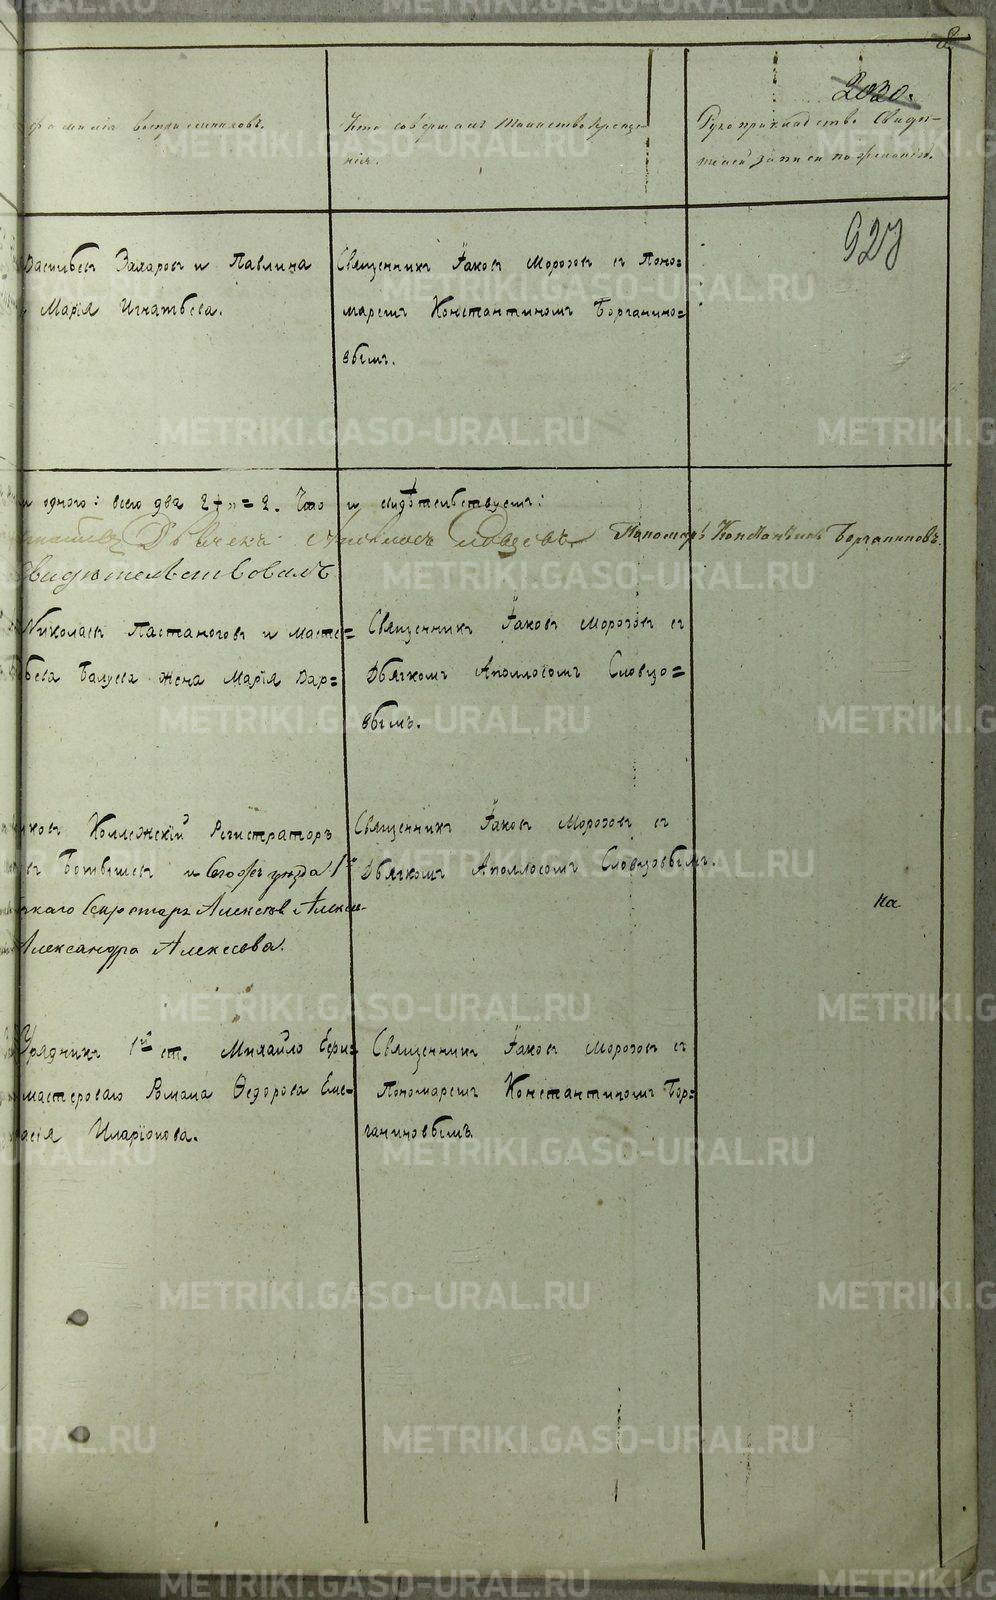 2030.
фамилія воспріемниковъ.
Кто совершалъ таинство креще-
нія.
Рукоприкладство свидѣ-
телей записи по желанію.
927
Захаровъ и Павлина
Марія Игнатьева.
Священникъ Іаковъ Морозовъ съ Поно=
маремъ Константиномъ Борганино=
вымъ.
одного: всего два 2. Что и свидѣтельствуемъ:
Дьяконъ Аполлосъ Словцовъ Пономарь Константинъ Борганиновъ.
свидѣтельствовалъ
Николаевъ и масте=
жена Марія Вар=
Священникъ Іаковъ Морозовъ съ
Дьякомъ Аполлосомъ Словцо=
вымъ.
Коллежскій Регистраторъ
и уѣзда 1й
Алексѣевъ
Александра Алексѣева.
Священникъ Іаковъ Морозовъ съ
Дьякомъ Аполлосомъ Словцовымъ.
на
Урядникъ 1й ст. Михайло
мастероваго Романа Ѳедорова
Иларіонова.
Священникъ Іаковъ Морозовъ съ
Пономаремъ Константиномъ Бор=
ганиновымъ.
METRIKI.GASO-URAL.RU